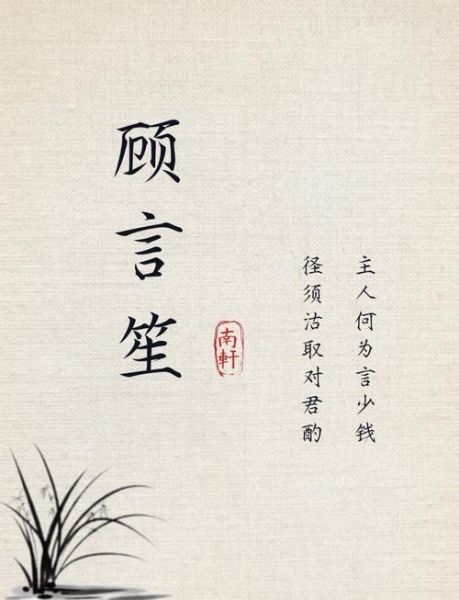 顾言笙
南軒
主人何为言少钱
径须沽取对君酌